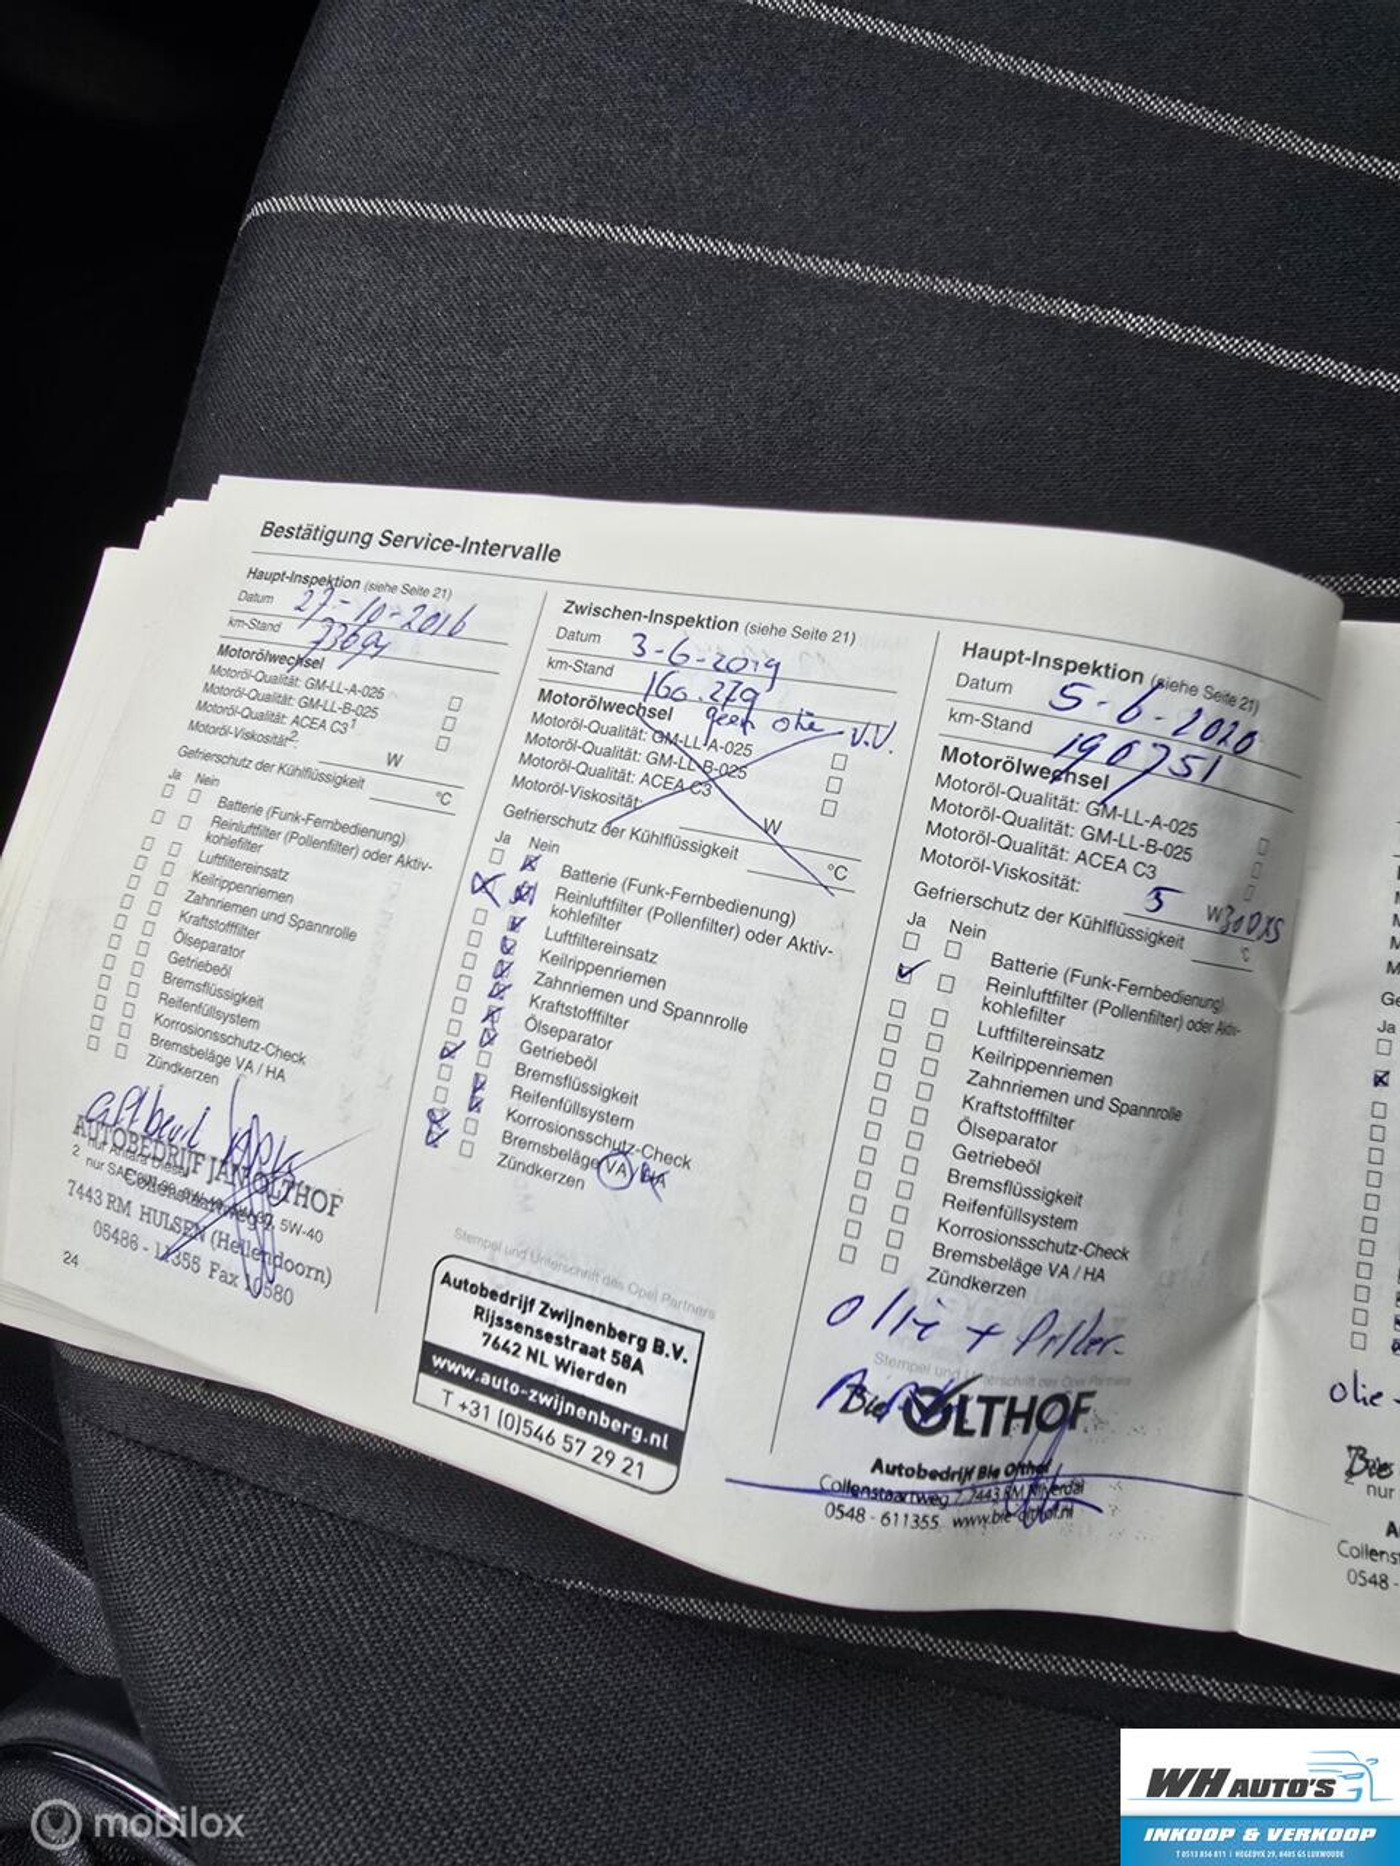 Bestätigung Service-Intervalle
Haupt-Inspektion (siehe Seite 21)
Datum 27-10-2016
km-Stand
Motorölwechsel
Motoröl-Qualität: GM-LL-A-025
Motoröl-Qualität: GM-LL-B-025
Motoröl-Qualität: ACEA C3¹
Motoröl-Viskosität²:
W
Gefrierschutz der Kühlflüssigkeit °C
Ja Nein
Batterie (Funk-Fernbedienung)
Reinluftfilter (Pollenfilter) oder Aktiv-
kohlefilter
Luftfiltereinsatz
Keilrippenriemen
Zahnriemen und Spannrolle
Kraftstofffilter
Ölseparator
Getriebeöl
Bremsflüssigkeit
Reifenfüllsystem
Korrosionsschutz-Check
Bremsbeläge VA / HA
Zündkerzen
AUTOBEDRIJF JAN OLTHOF
7443 RM HULSEN (Hellendoorn)
05486 - 11355 Fax 10580
24
Zwischen-Inspektion (siehe Seite 21)
Datum 3-6-2019
km-Stand 160.279
Motorölwechsel geen olie v.v.
Motoröl-Qualität: GM-LL-A-025
Motoröl-Qualität: GM-LL-B-025
Motoröl-Qualität: ACEA C3
Motoröl-Viskosität:
W
Gefrierschutz der Kühlflüssigkeit °C
Ja Nein
Batterie (Funk-Fernbedienung)
Reinluftfilter (Pollenfilter) oder Aktiv-
kohlefilter
Luftfiltereinsatz
Keilrippenriemen
Zahnriemen und Spannrolle
Kraftstofffilter
Ölseparator
Getriebeöl
Bremsflüssigkeit
Reifenfüllsystem
Korrosionsschutz-Check
Bremsbeläge VA / HA
Zündkerzen
Stempel und Unterschrift des Opel Partners
Autobedrijf Zwijnenberg B.V.
Rijssensestraat 58A
7642 NL Wierden
www.auto-zwijnenberg.nl
T +31 (0)546 57 29 21
Haupt-Inspektion (siehe Seite 21)
Datum 5-6-2020
km-Stand 190751
Motorölwechsel
Motoröl-Qualität: GM-LL-A-025
Motoröl-Qualität: GM-LL-B-025
Motoröl-Qualität: ACEA C3
Motoröl-Viskosität: 5 W
Gefrierschutz der Kühlflüssigkeit °C
Ja Nein
Batterie (Funk-Fernbedienung)
Reinluftfilter (Pollenfilter) oder Aktiv-
kohlefilter
Luftfiltereinsatz
Keilrippenriemen
Zahnriemen und Spannrolle
Kraftstofffilter
Ölseparator
Getriebeöl
Bremsflüssigkeit
Reifenfüllsystem
Korrosionsschutz-Check
Bremsbeläge VA / HA
Zündkerzen
Olie + filter
Stempel und Unterschrift des Opel Partners
Bie OLTHOF
Autobedrijf Bie Olthof
Collenstaartweg 7, 7443 RM Nijverdal
0548 - 611355 www.bie-olthof.nl
Ja
olie
Bie
nur
Collens
0548 -
mobilox
WH AUTO'S
INKOOP & VERKOOP
T 0513 856 811 | HEGEDYK 29, 8405 GS LUXWOUDE